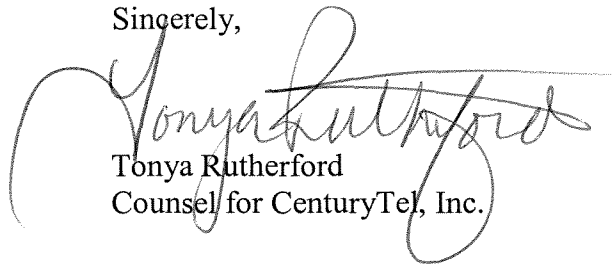 Sincerely,
Tonya Rutherford
Tonya Rutherford
Counsel for CenturyTel, Inc.